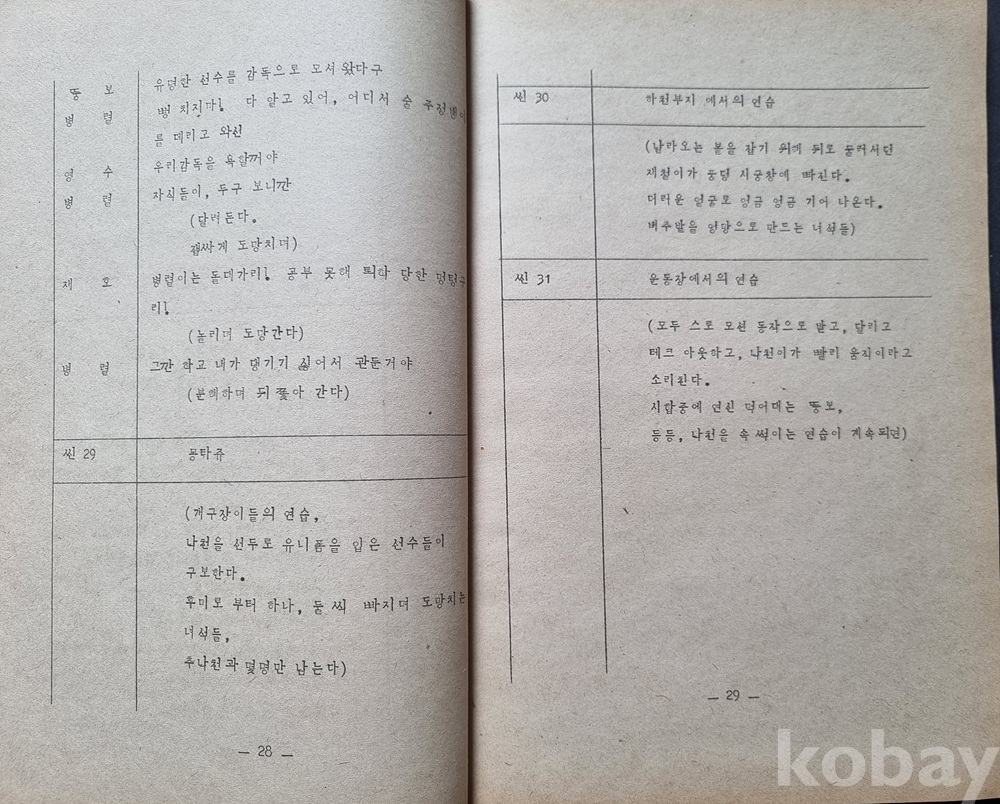 뚱보 유명한 선수를 감독으로 모셔왔다구
병렬 뻥 치지마! 다 알고 있어, 어디서 술 주정뱅이
를 데리고 와선
영수 우리감독을 욕할꺼야
병렬 자식들이, 두구 보니깐
(달려든다.
잽싸게 도망치며)
재호 병렬이는 돌대가리! 공부 못해 퇴학 당한 멍텅구
리!
(놀리며 도망간다)
병렬 그깐 학교 내가 댕기기 싫어서 관둔거야
(분해하며 뒤 쫓아 간다)
씬 29 몽타쥬
(개구장이들의 연습,
나천을 선두로 유니폼을 입은 선수들이
구보한다.
후미로 부터 하나, 둘 씩 빠지며 도망치는
녀석들,
추나천과 몇명만 남는다)
— 28 —
씬 30 하천부지 에서의 연습
(날라오는 볼을 잡기 위해 뒤로 물러서던
재철이가 웅덩 시궁창에 빠진다.
더러운 얼굴로 엉금 엉금 기어 나온다.
배추밭을 엉망으로 만드는 녀석들)
씬 31 운동장에서의 연습
(모두 스로 모션 동작으로 받고, 달리고
테크 아웃하고, 나천이가 빨리 움직이라고
소리친다.
시합중에 연신 먹어대는 뚱보,
등등, 나천을 속 썩이는 연습이 계속되면)
— 29 —
kobay